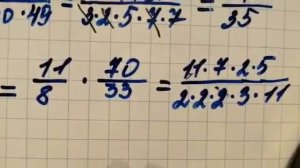 0·49 = 2·2·5·7·7 = 35
= 11/8 · 70/33 = 11·7·2·5/2·2·2·3·11